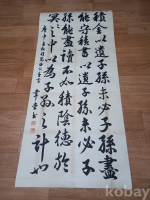 積金以遺子孫未必子孫盡
能守積書以遺子孫未必子
孫能盡讀不如積陰德於
冥冥之中以為子孫之計也
kobay